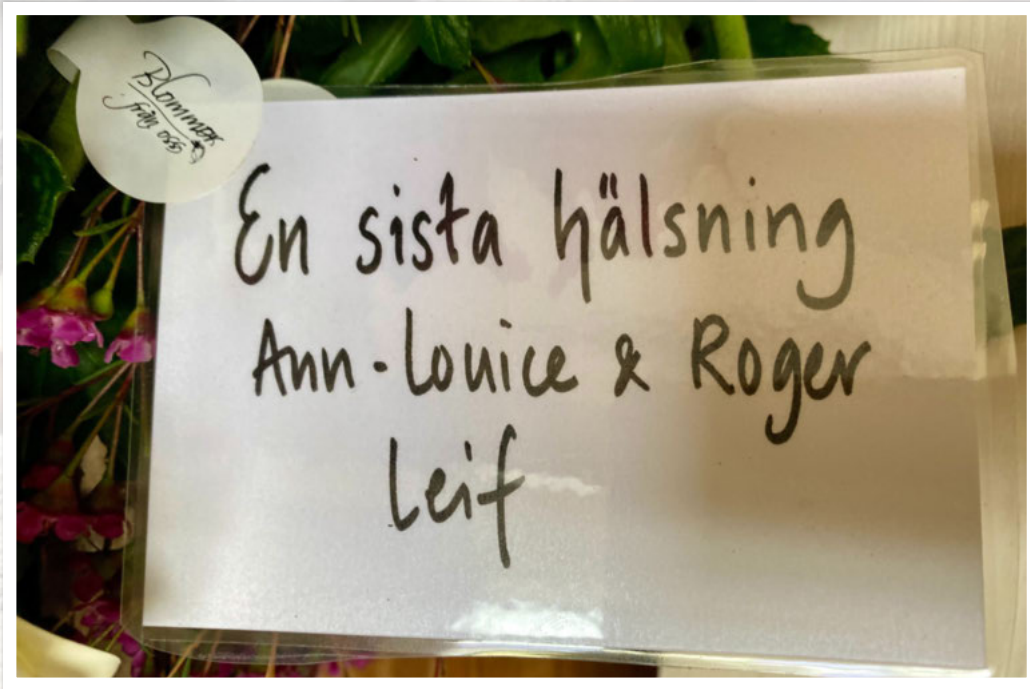 Blommor
från oss
En sista hälsning
Ann-Louice & Roger
Leif